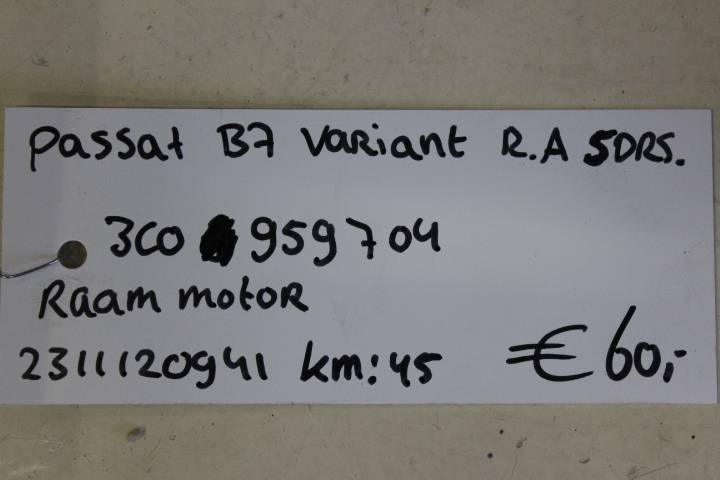 Passat B7 Variant R.A 5DRS.
3C0 959704
Raam motor
2311120941 km:45 € 60,-